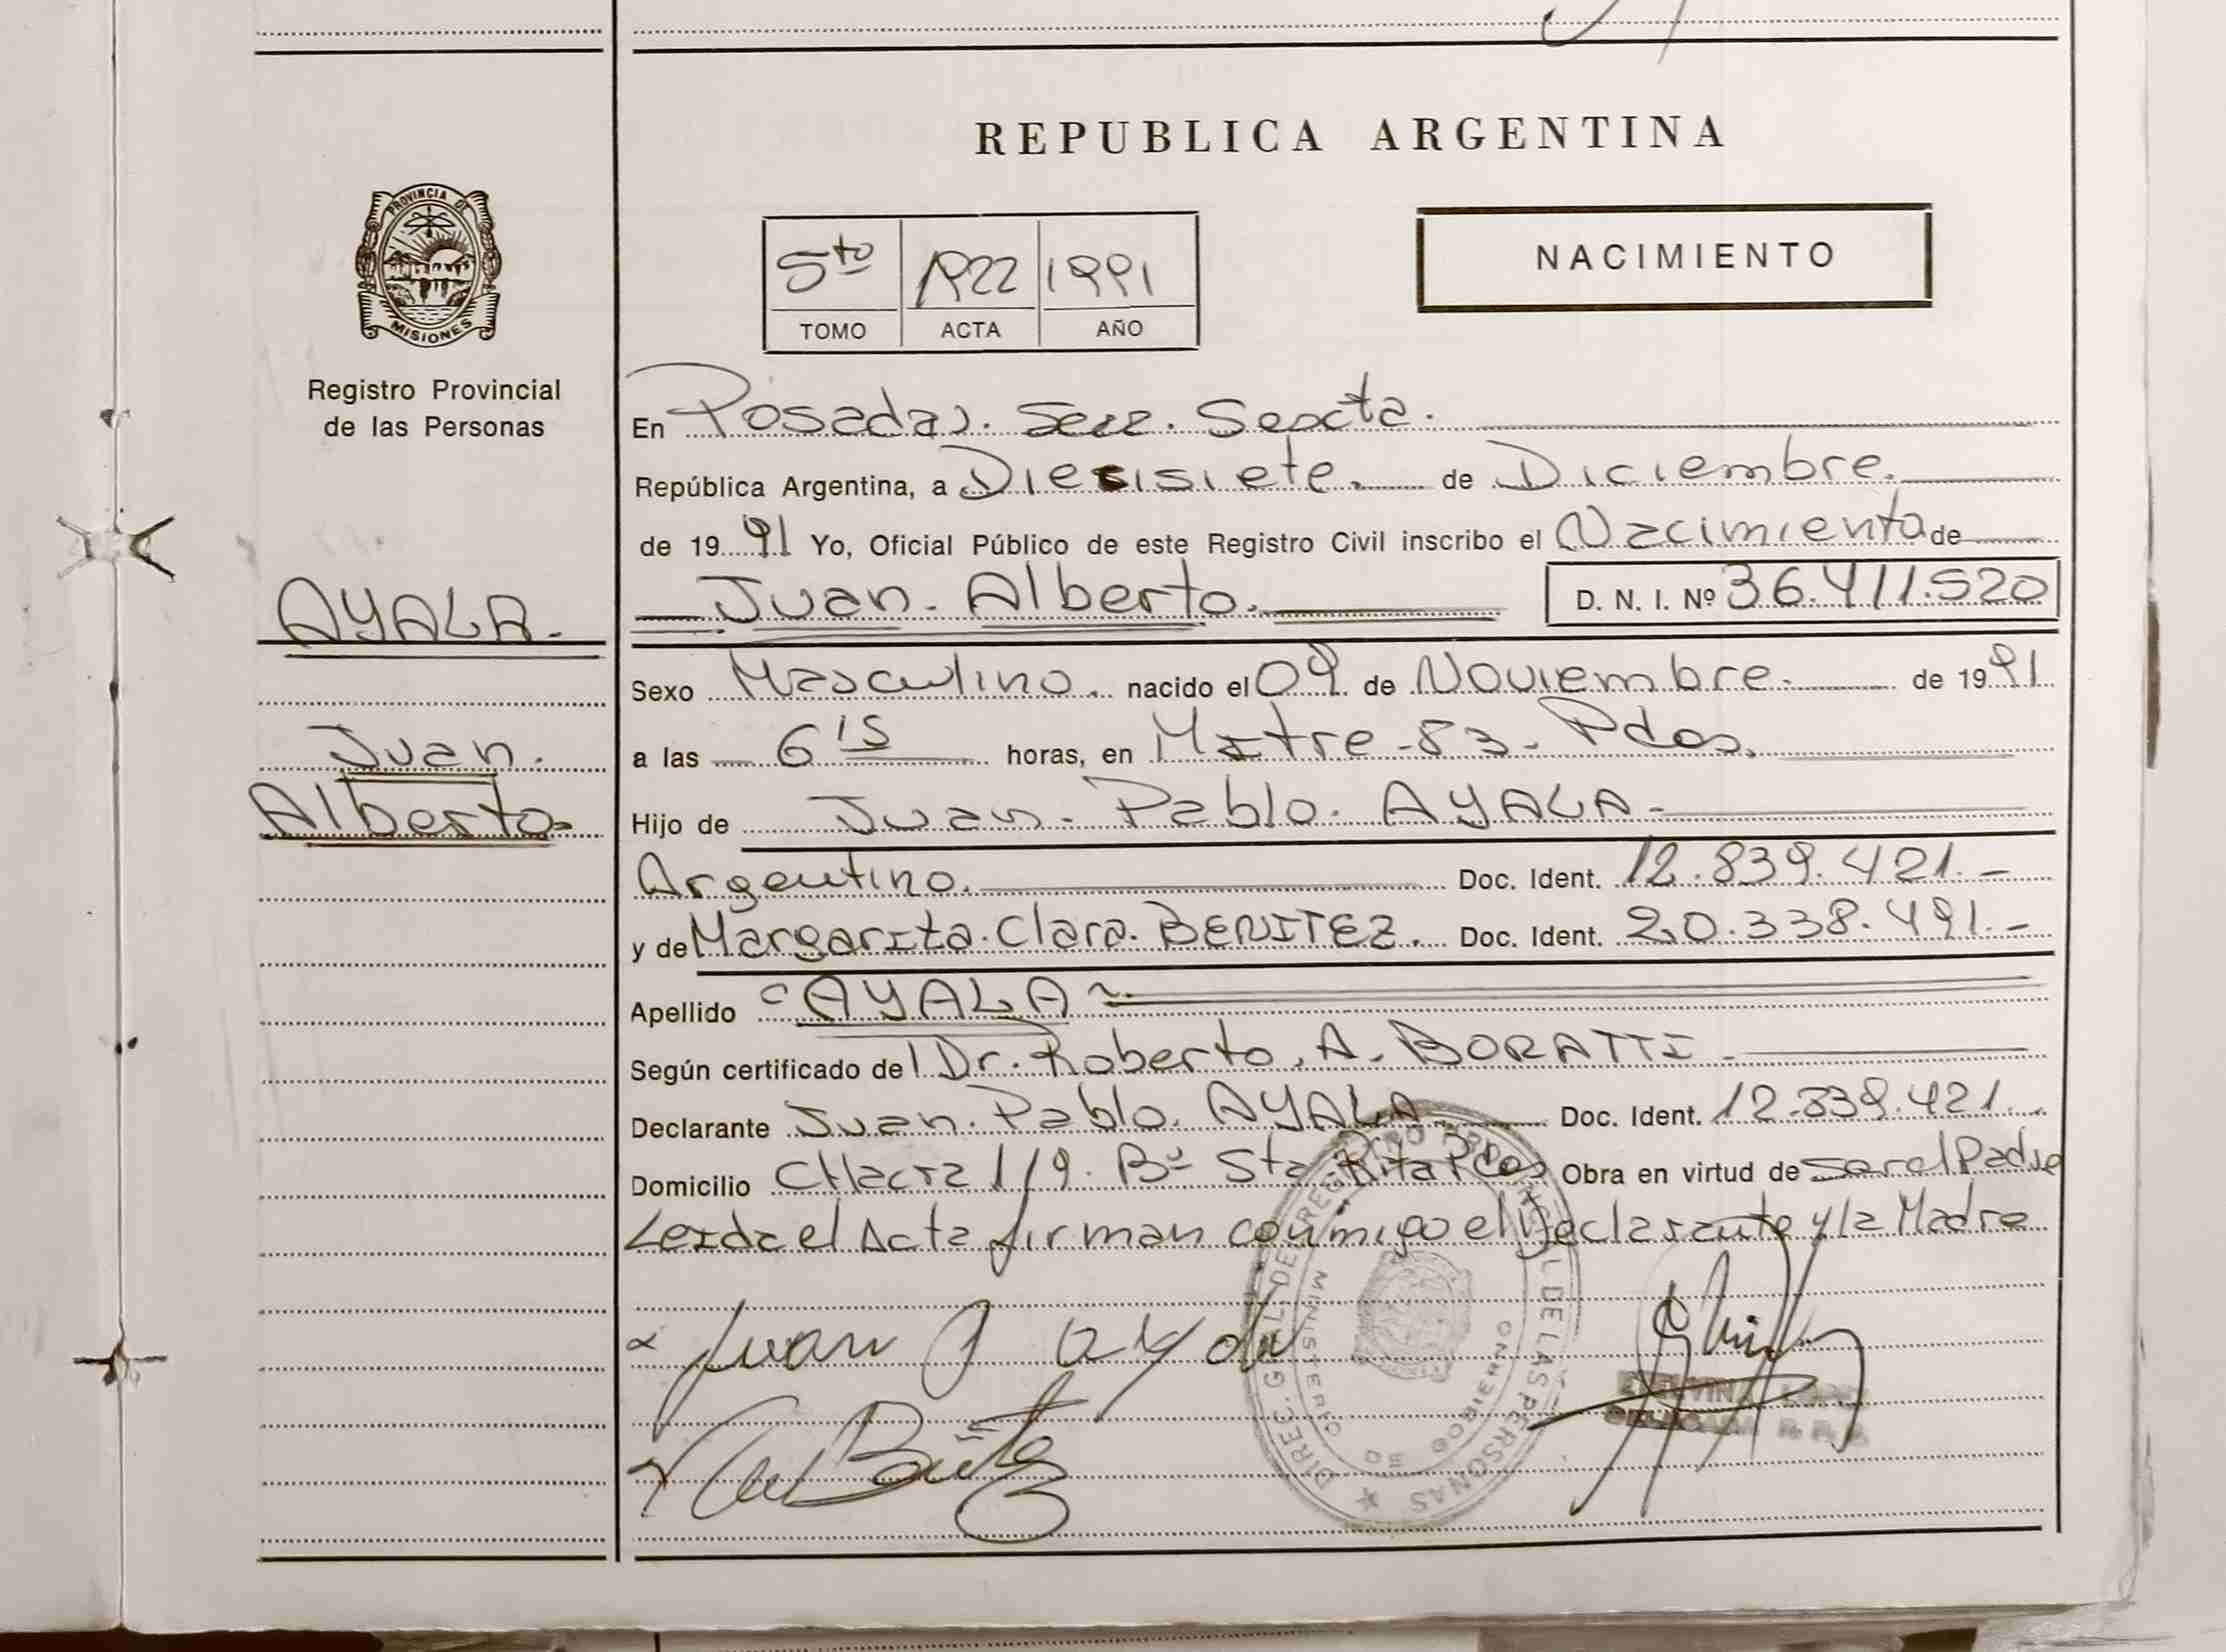 REPUBLICA ARGENTINA
PROVINCIA DE
MISIONES
Registro Provincial
de las Personas
5to 1922 1991
TOMO ACTA AÑO
NACIMIENTO
En Posadas. Secc. Sexta.
República Argentina, a Diecisiete. de Diciembre.
de 1991 Yo, Oficial Público de este Registro Civil inscribo el Nacimiento de
Juan. Alberto. D. N. I. Nº 36.411.520
AYALA.
Juan.
Alberto
Sexo Masculino. nacido el 09 de Noviembre. de 1991
a las 6 15 horas, en Mitre-83-Pdas.
Hijo de Juan. Pablo. AYALA-
Argentino. Doc. Ident. 12.839.421.-
y de Margarita. Clara. BENITEZ. Doc. Ident. 20.338.491.-
Apellido AYALA
Según certificado del Dr. Roberto. A. BORATTI-
Declarante Juan. Pablo. AYALA Doc. Ident. 12.839.421.
Domicilio CHacra 119. Bº Sta Rita Pdas Obra en virtud de ser el Padre
Leida el Acta firman conmigo el Declarante y la Madre
Juan P Ayala
DIREC. GRAL. DE REGISTRO PROVINCIAL DE LAS PERSONAS
MINISTERIO DE GOBIERNO